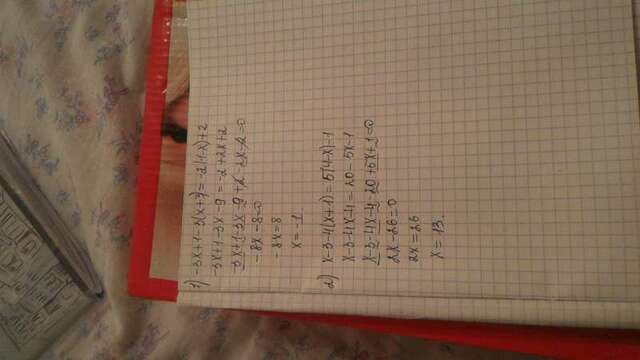 1) -3x+1-3(x+3)=-2(1-x)+2
-3x+1-3x-9=-2+2x+2
-3x+1-3x-9+2-2x-2=0
-8x-8=0
-8x=8
x=-1
2) x-3-4(x+1)=5(4-x)-1
x-3-4x-4=20-5x-1
x-3-4x-4-20+5x+1=0
2x-26=0
2x=26
x=13.